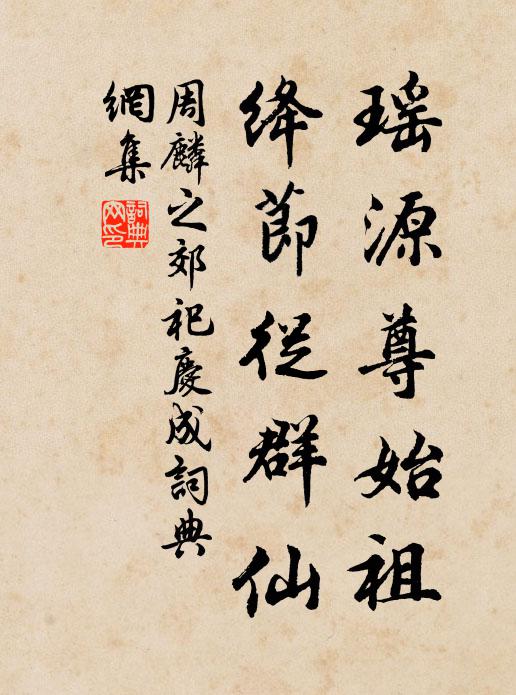 瑶源尊始祖
绛节從群仙
周麟之郊祀慶成詞典
網集
詞典網印